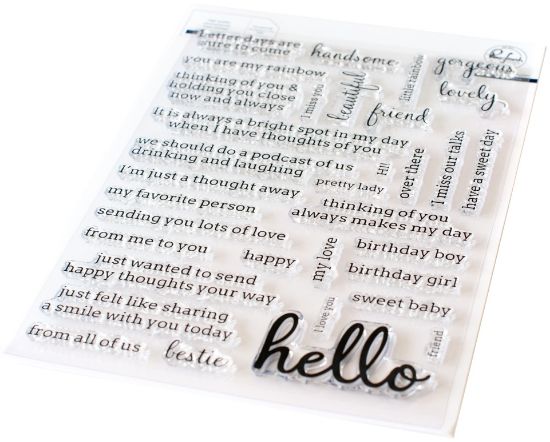 Letter days are
sure to come
handsome
gorgeous
you are my rainbow
little rainbow
thinking of you &
holding you close
now and always
I miss you
beautiful
lovely
friend
It is always a bright spot in my day
when I have thoughts of you
we should do a podcast of us
drinking and laughing
Hi!
over there
I miss our talks
have a sweet day
I'm just a thought away
pretty lady
my favorite person
thinking of you
always makes my day
sending you lots of love
from me to you
happy
my love
birthday boy
just wanted to send
happy thoughts your way
birthday girl
just felt like sharing
a smile with you today
I love you
sweet baby
from all of us
bestie
hello
friend